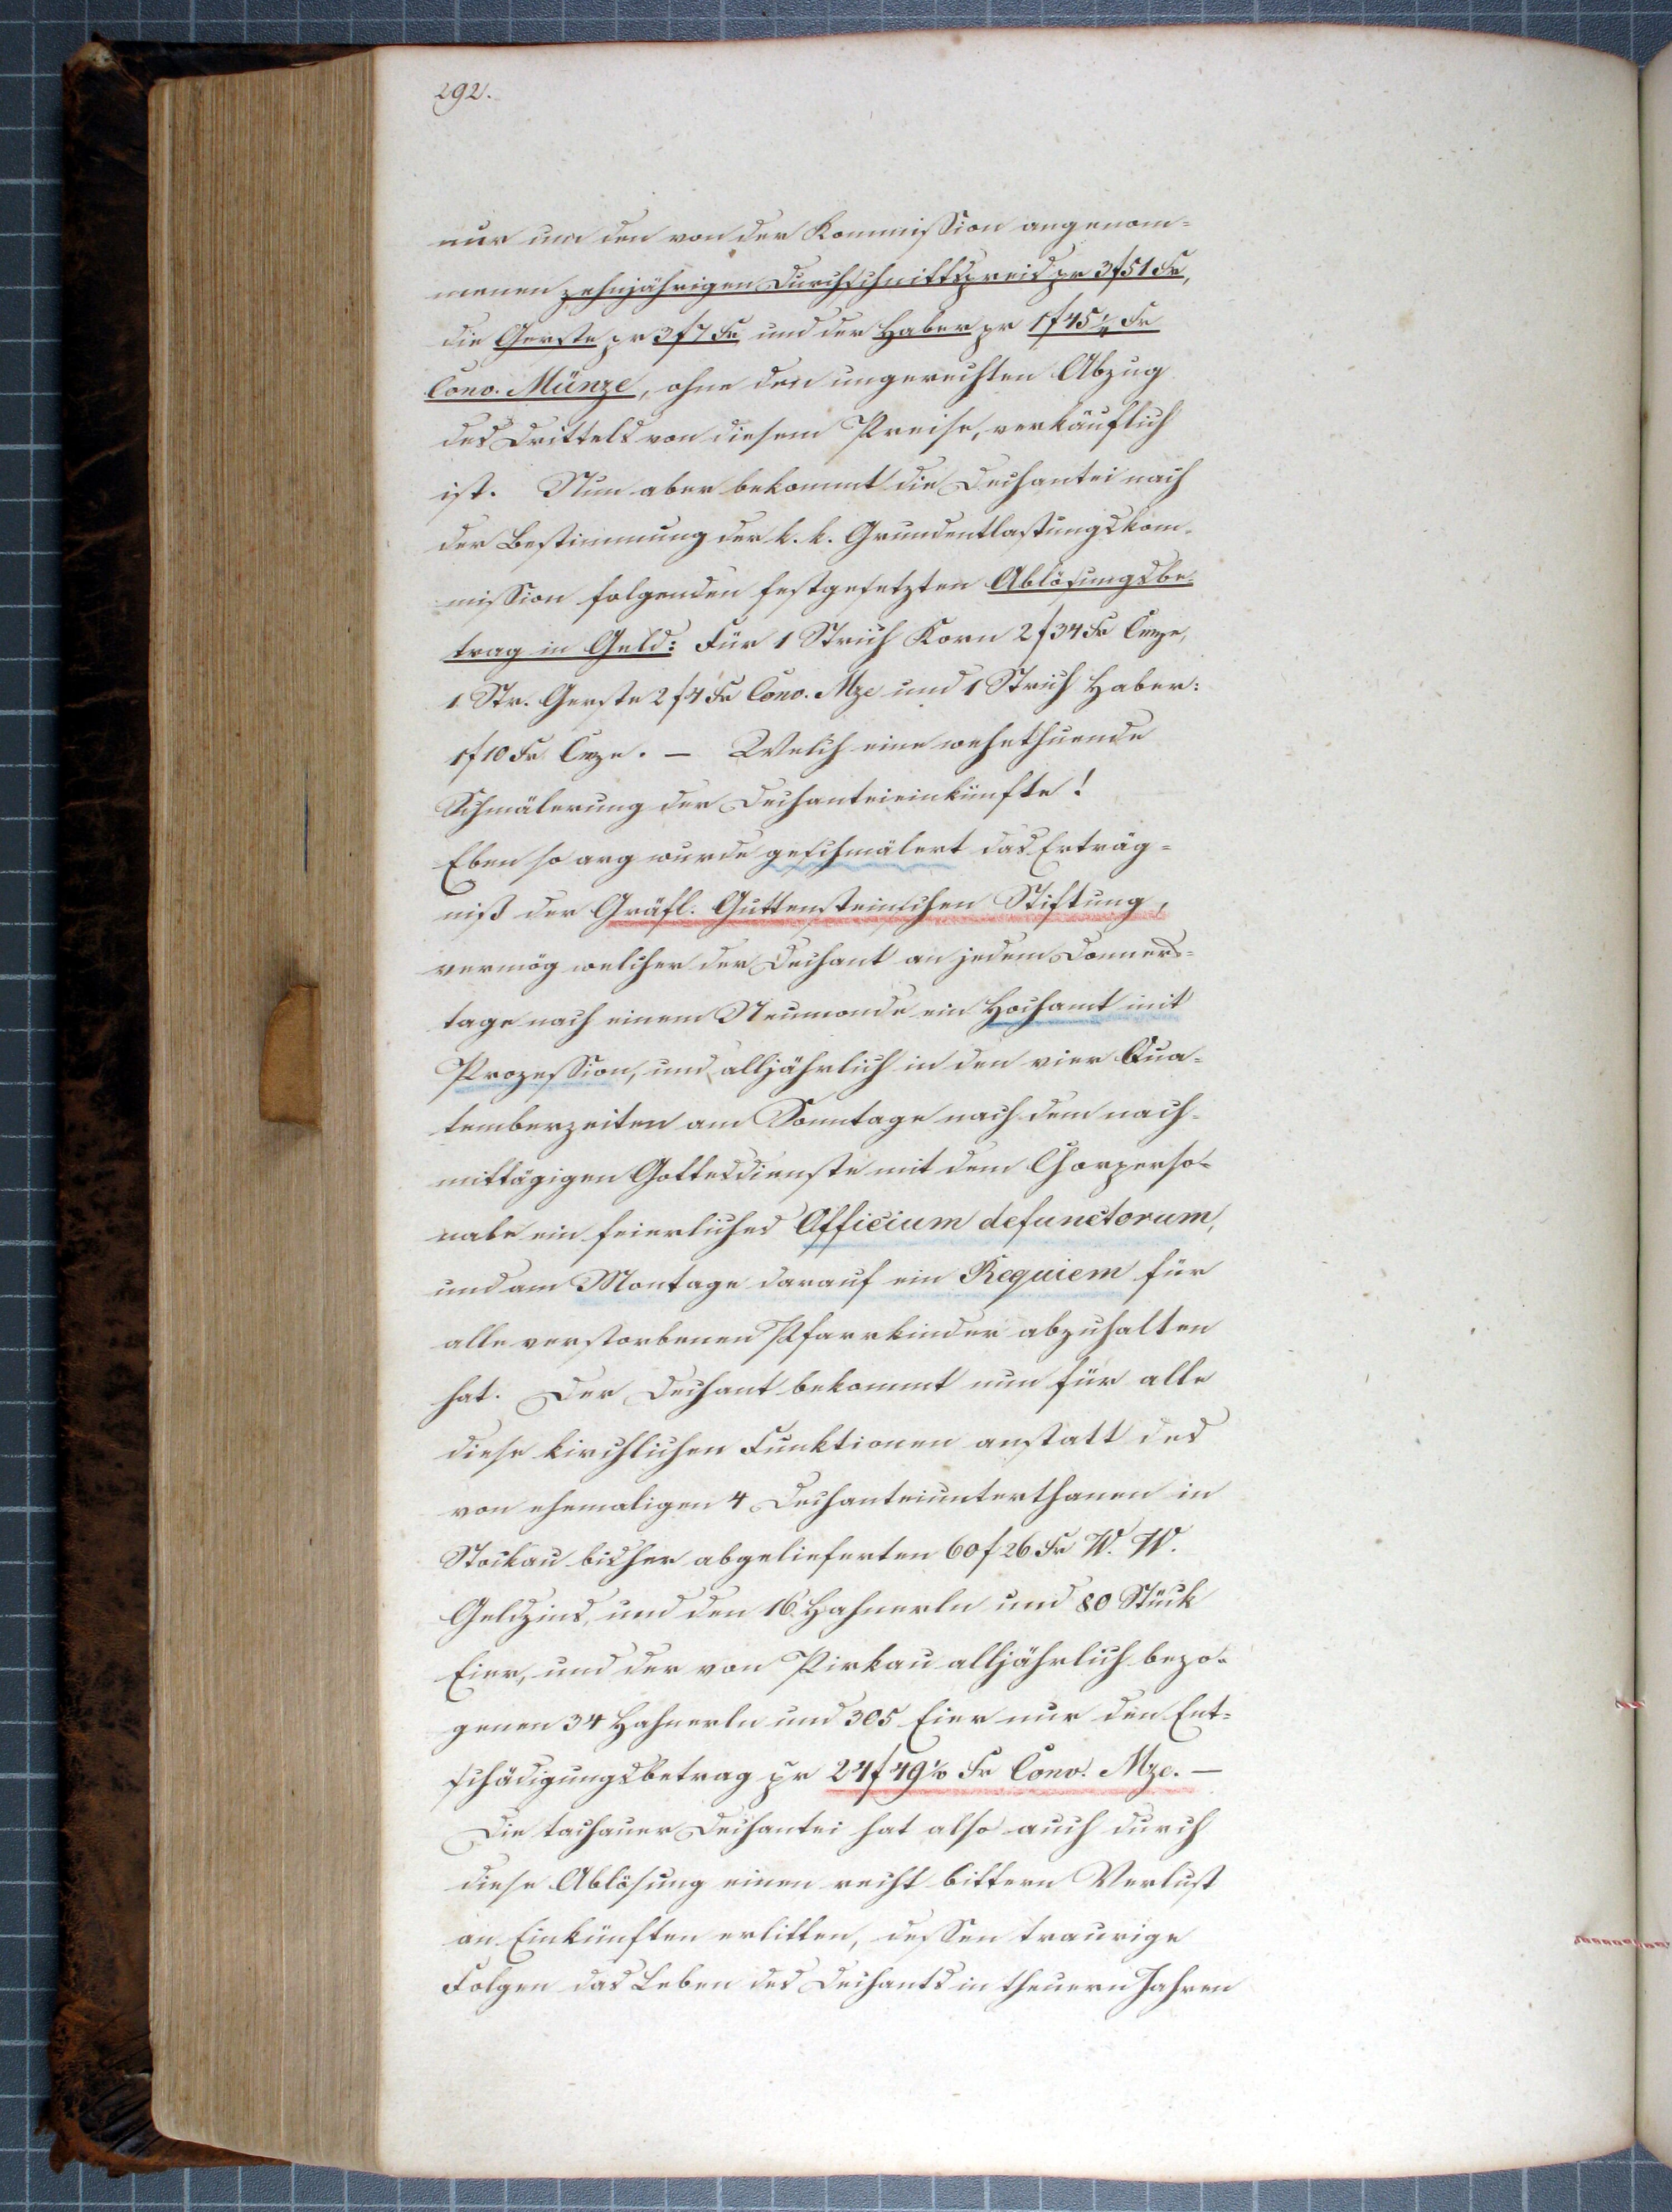 292.
nur um den von der Kommission angenom=
menen zehnjährigen Durchschnittspreis pr 3 f 51 kr,
die Gerste pr 3 f 7 kr und der Haber pr 1 f 45 2/4 kr
Conv. Münze, ohne den ungerechten Abzug
des Drittels von diesem Preise, verkäuflich
ist. Nun aber bekommt die Dechantei nach
der Bestimmung der k. k. Grundentlastungskom=
mission folgenden festgesetzten Ablösungsbe=
trag in Geld: Für 1 Strich Korn 2 f 34 kr Cmze,
1 Str. Gerste 2 f 4 kr Conv. Mze und 1 Strich Haber:
1 f 10 kr Cmze. — Welch eine wehethuende
Schmälerung der Dechanteieinkünfte!
Eben so arg wurde geschmälert das Erträg=
niß der Gräfl. Guttensteinischen Stiftung,
vermög welcher der Dechant an jedem Donners=
tage nach einem Neumonde ein Hochamt mit
Prozession, und alljährlich in den vier Qua=
temberzeiten am Sonntage nach dem nach=
mittägigen Gottesdienste mit dem Chorperso=
nale ein feierliches Officium defunctorum,
und am Montage darauf ein Requiem für
alle verstorbenen Pfarrkinder abzuhalten
hat. Der Dechant bekommt nun für alle
diese kirchlichen Funktionen anstatt des
von ehemaligen 4 Dechanteiunterthanen in
Stockau bisher abgelieferten 60 f 26 kr W. W.
Geldzins, und den 16 Hahnerln und 80 Stück
Eier, und der von Pirkau alljährlich bezo=
genen 34 Hahnerln und 305 Eier nur den Ent=
schädigungsbetrag pr 24 f 49 kr Conv. Mze. —
Die tachauer Dechantei hat also auch durch
diese Ablösung einen recht bittern Verlust
an Einkünften erlitten, dessen traurige
Folgen das Leben des Dechants in theuern Jahren